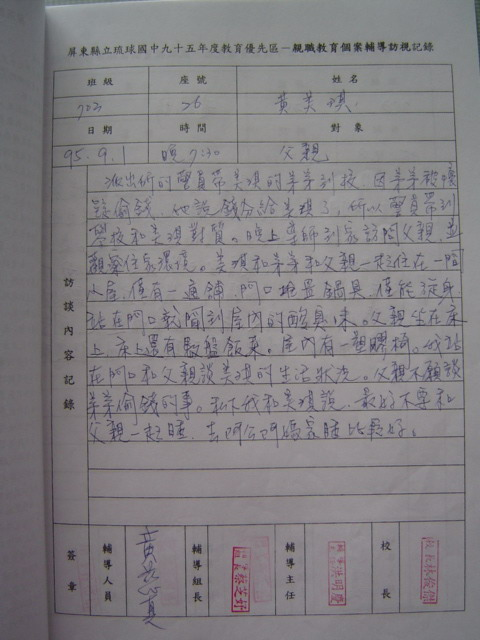 屏東縣立琉球國中九十五年度教育優先區－親職教育個案輔導訪視記錄
班級 座號 姓名
703 26 黃美琪
日期 時間 對象
95.9.1 晚7:30 父親
訪談內容記錄
派出所的警員帶美琪的弟弟到校，因弟弟被懷
疑偷錢，他說錢分給美琪了，所以警員帶到
學校和美琪對質。晚上導師到家訪問父親，並
觀察住家環境。美琪和弟弟和父親一起住在一間
小屋，僅有一通舖，門口堆疊鍋具，僅能
站在門口就聞到屋內的酸臭味。父親坐在床
上，床上還有飯菜。屋內有一塑膠桶。我站
在門口和父親談美琪的生活狀況。父親不願談
弟弟偷錢的事。私下我和美琪說，最好不要和
父親一起睡，去阿公阿媽家睡比較好。
簽章
輔導人員
輔導組長
輔導主任
校長